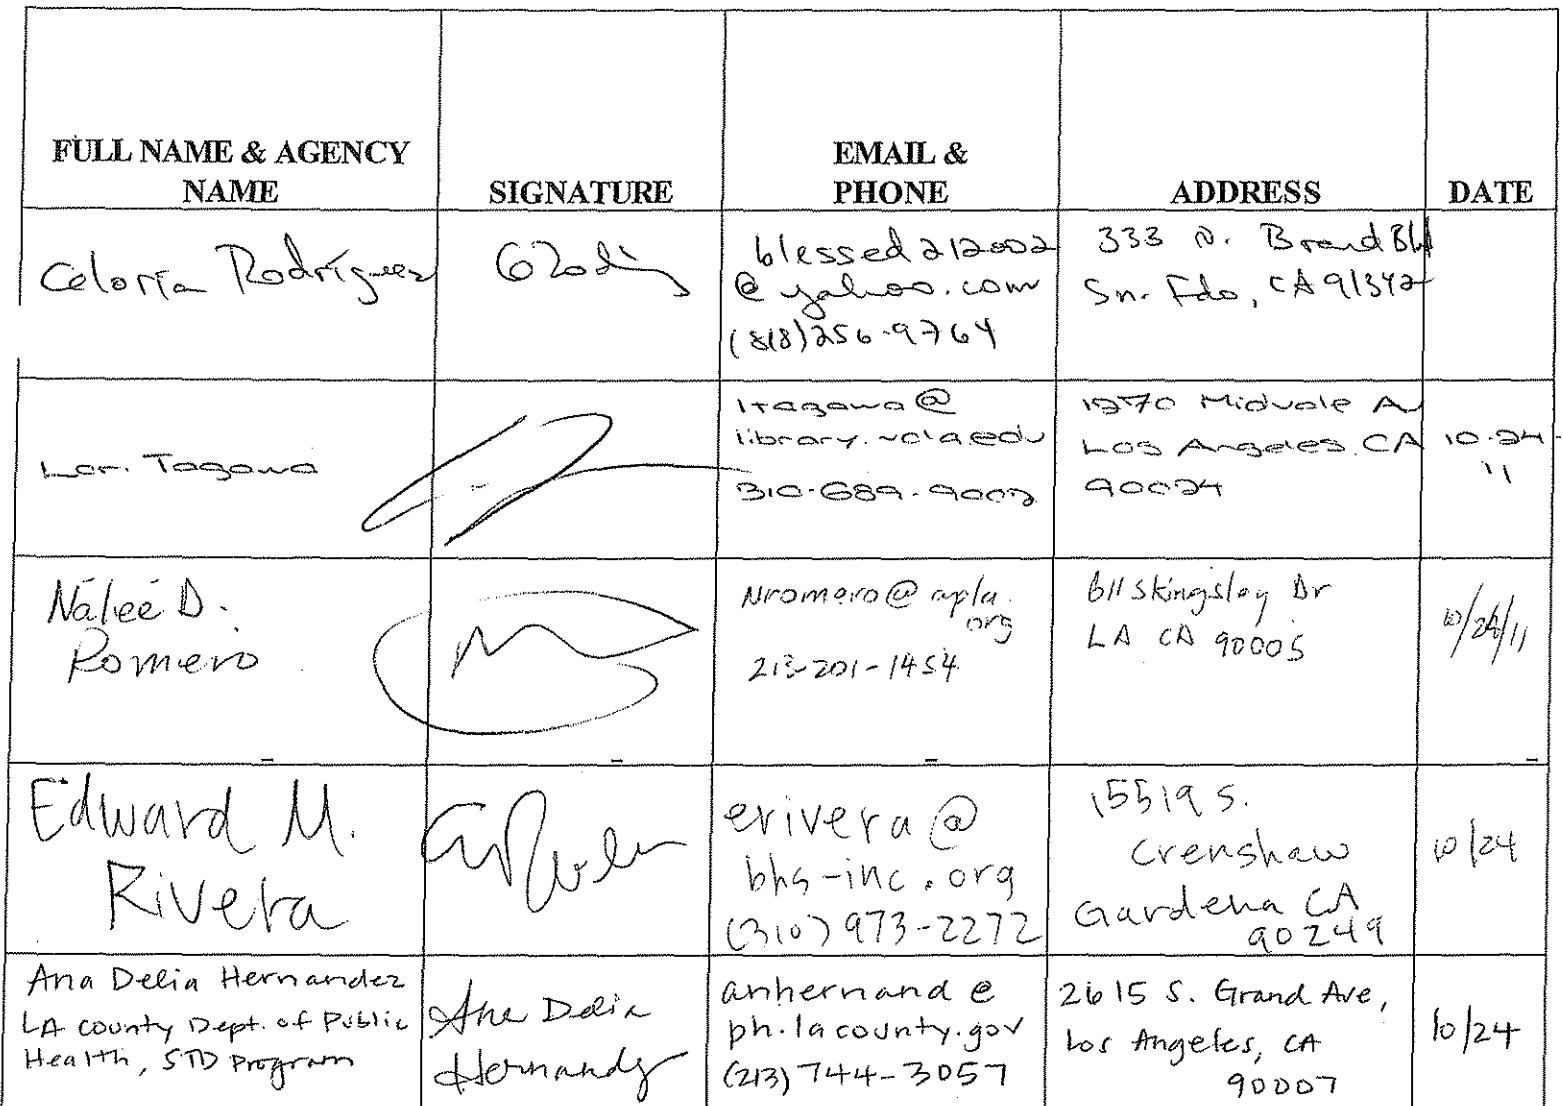 FULL NAME & AGENCY
NAME
SIGNATURE
EMAIL &
PHONE
ADDRESS
DATE
Gloria Rodríguez
blessed212002
@yahoo.com
(818)256-9764
333 N. Brand Blvd
Sn. Fdo, CA 91342
Lori Tagawa
ltagawa@
library.ucla.edu
310-689-9002
1270 Midvale Av
Los Angeles. CA
90024
10-24-
11
Nalee D.
Romero
Nromero@apla.
org
213-201-1454
611 S Kingsley Dr
LA CA 90005
10/24/11
Edward M.
Rivera
erivera@
bhs-inc.org
(310) 973-2272
15519 S.
Crenshaw
Gardena CA
90249
10/24
Ana Delia Hernandez
LA County Dept. of Public
Health, STD Program
Ana Delia
Hernandez
anhernand@
ph.lacounty.gov
(213) 744-3057
2615 S. Grand Ave,
Los Angeles, CA
90007
10/24